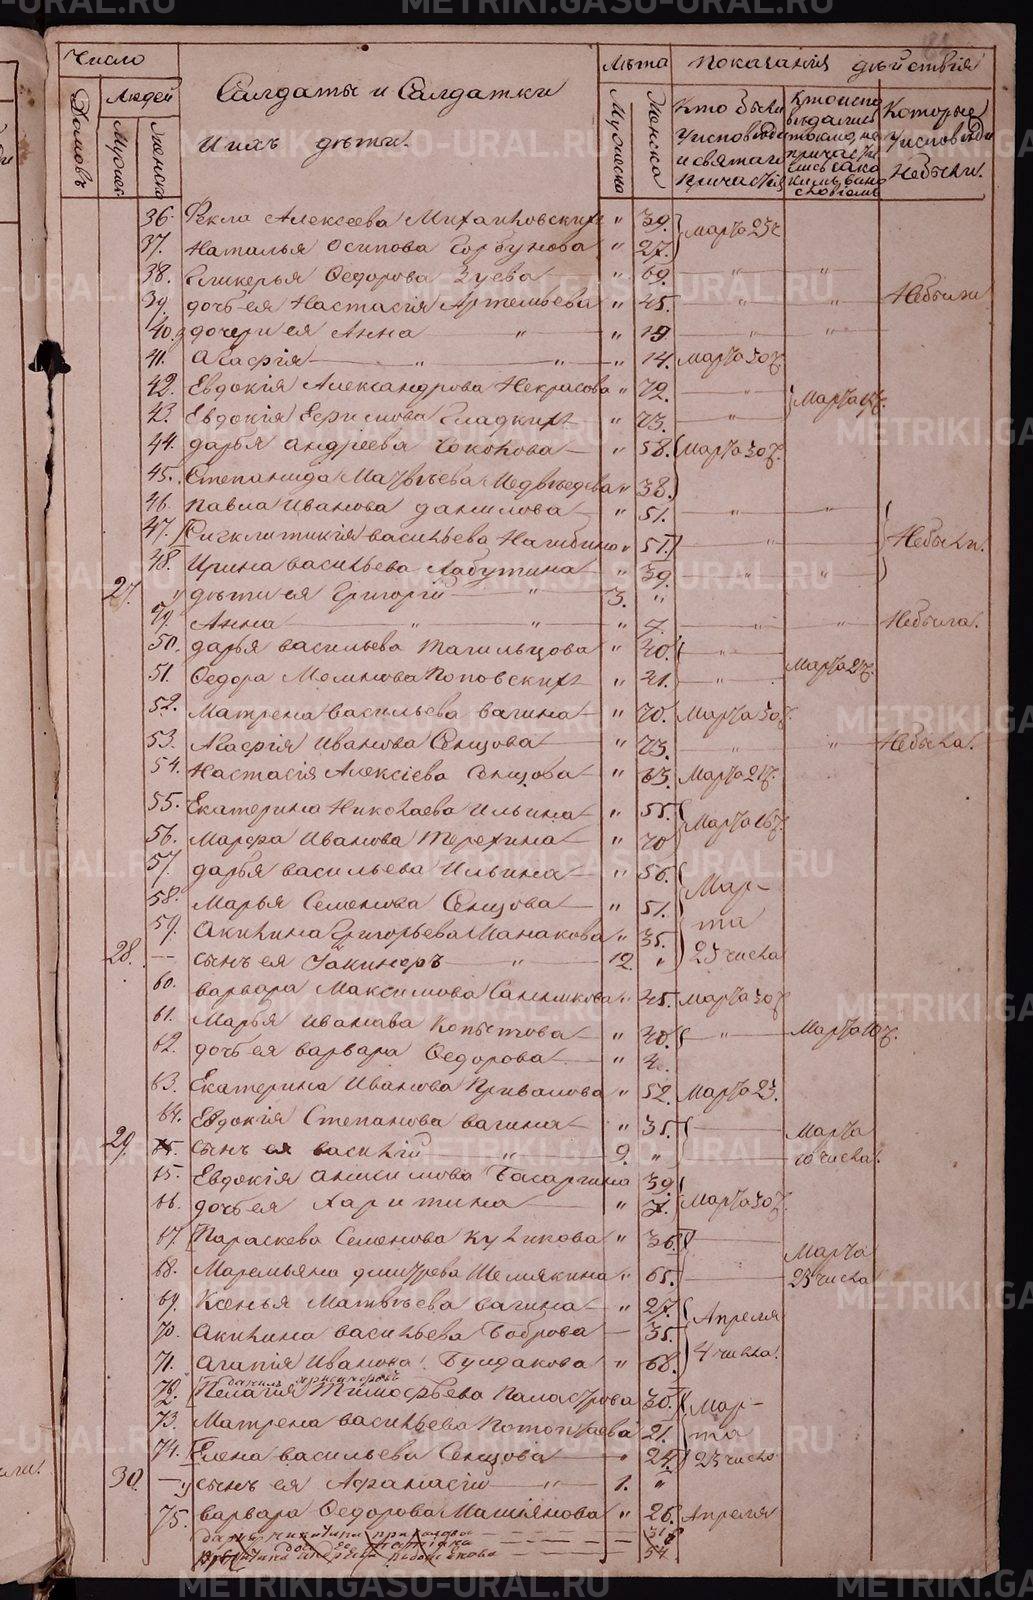 METRIKI.GASO-URAL.RU
Число
Домовъ
Людей
Мужеск
Женска
Салдаты и Салдатки
и ихъ дѣти.
Лѣта
Мужеска
Женска
Показанія дѣйствія
Кто были у исповѣди и святаго причастія
Которые у исповѣди небыли.
36. Фекла Алексеева Михаиловскихъ " 39. Марта 23 ч
37. Наталья Осипова Горбунова " 27.
38. Гликерья Федорова Зуева " 69. " "
39. дочь ея Настасія Артемьева " 45. " " Небыли
40. дочери ея Анна " " 19 " "
41. Агафія " " " 14. Марта 30 ч.
42. Евдокія Александрова Некрасова " 72. " Марта
43. Евдокія Ефимова Гладкихъ " 73. "
44. дарья андрѣева " 58. Марта 30 ч.
45. Степанида Матвѣева Медвѣдева " 38.
46. Павла Иванова данилова " 51. " "
47. Синклитикія васильева Нагибина " 51. " Небыли.
48. Ирина васильева Лабутина " 39. " "
27. " дѣти ея Григорій " 3. "
49. Анна " " " 7. " " Небыла.
50. дарья васильева Тагильцова " 40. "
51. Федора Поповскихъ " 21. " Марта 21 ч.
52. Матрена васильева вагина " 70. Марта 30 ч.
53. Агафія Иванова Сенцова " 73. " " Небыла.
54. Настасія Алексіева Сенцова " 63. Марта 21 ч.
55. Екатерина Николаева Ильина " 55. Марта 16 ч.
56. Марфа Иванова Терехина " 70
57. дарья васильева Ильина " 56. Мар-
58. Марья Семенова Сенцова " 51. та
59. Акилина Григорьева Манакова " 35. 23 числа
28. сынъ ея " 12. "
60. варвара Максимова Санникова " 45. Марта 30 ч
61. Марья Иванова Копытова " 40. " Марта
62. дочь ея варвара Федорова " 4.
63. Екатерина Иванова Привалова " 52. Марта 23.
64. Евдокія Степанова вагина " 35. Марта
29. сынъ ея василій " 9. " 10 числа.
65. Евдокія анисимова Басаргина 39. Марта 30 ч.
66. дочь ея Харитина "
67. Параскева Семенова Куликова " 36. Марта
68. Маремьяна дмитрева Шемякина " 65. 23 числа
69. Ксенья Матвѣева вагина " 27. Апреля
70. Акилина васильева Боброва 35. 4 числа.
71. Агапія Иванова " 68.
72. Пелагия Тимофѣева 30. Мар-
73. Матрена васильева Потопаева 21. та
74. Елена васильева Сенцова 24. 23 числа
30. " сынъ ея Афанасій " 1. "
75. варвара Федорова " 26. Апреля
54.